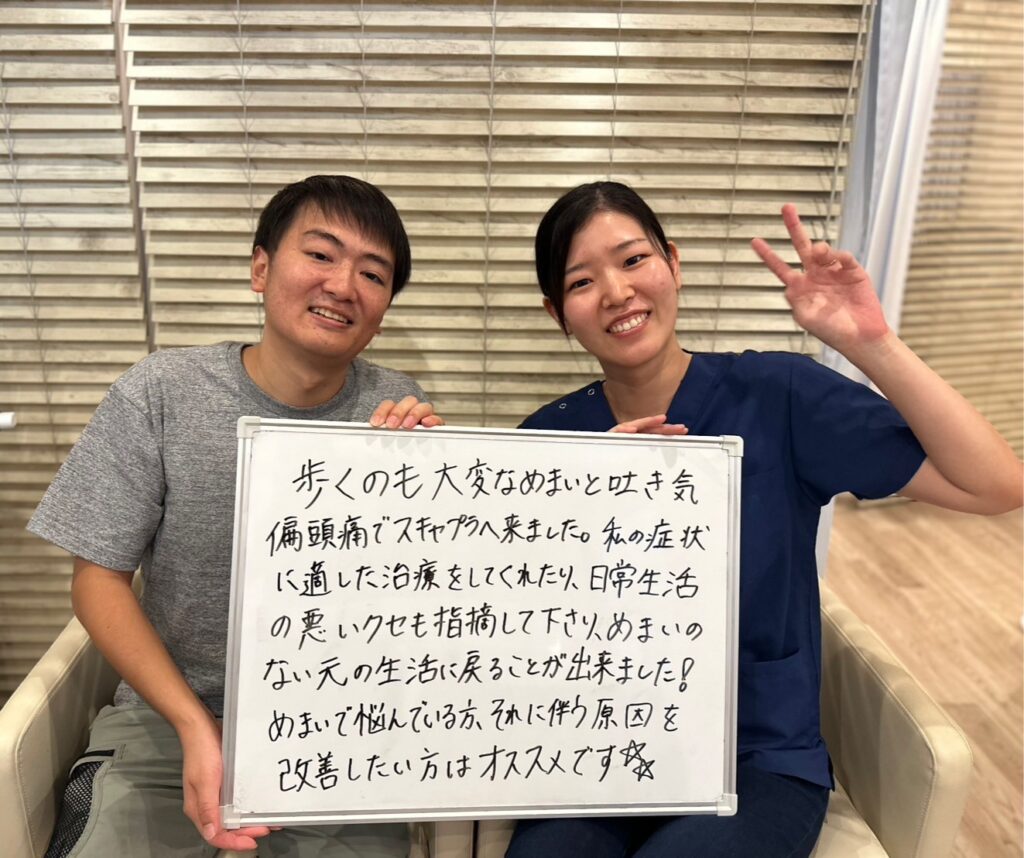 歩くのも大変なめまいと吐き気
偏頭痛でスキャプラへ来ました。私の症状
に適した治療をしてくれたり、日常生活
の悪いクセも指摘して下さり、めまいの
ない元の生活に戻ることが出来ました!
めまいで悩んでいる方、それに伴う原因を
改善したい方はオススメです☆☆